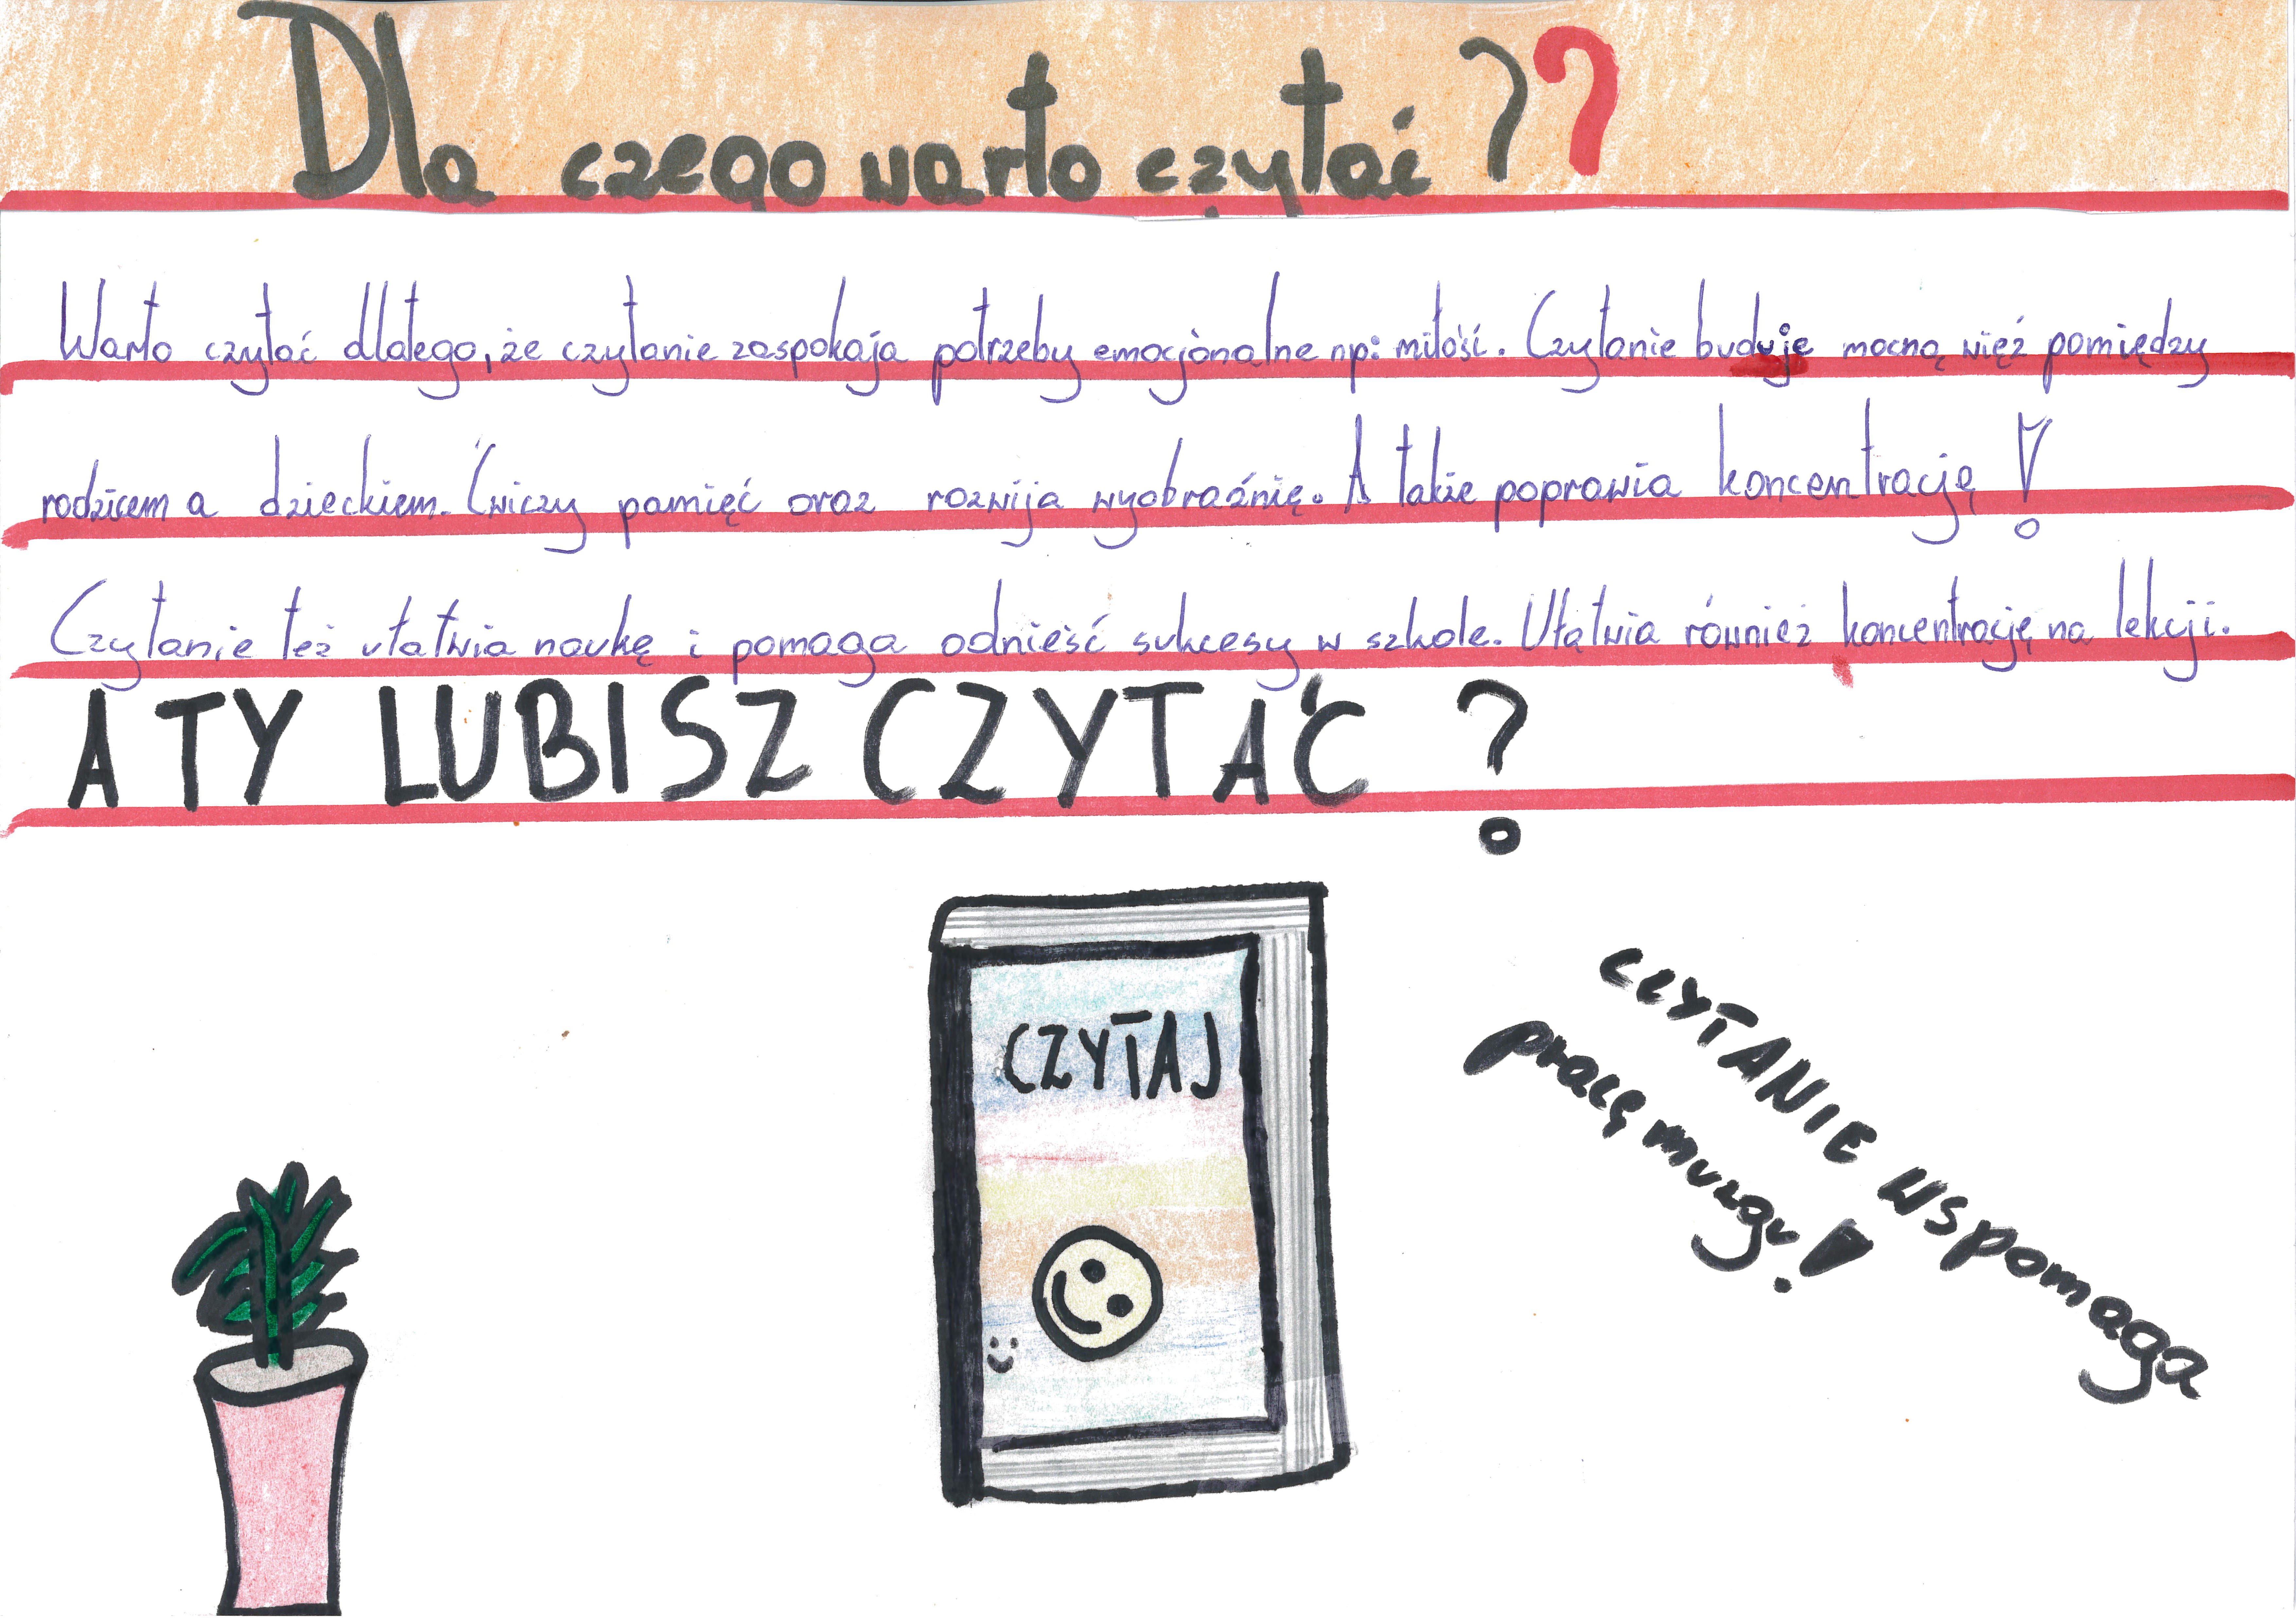 Dla czego warto czytać ??
Warto czytać dlatego, że czytanie zaspokaja potrzeby emocjonalne np: miłość. Czytanie buduje mocną więź pomiędzy
rodzicem a dzieckiem. Ćwiczy pamięć oraz rozwija wyobraźnię. A także poprawia koncentrację !
Czytanie też ułatwia naukę i pomaga odnieść sukcesy w szkole. Ułatwia również koncentrację na lekcji.
A TY LUBISZ CZYTAĆ ?
CZYTAJ
CZYTANIE wspomaga
pracę muzgu!